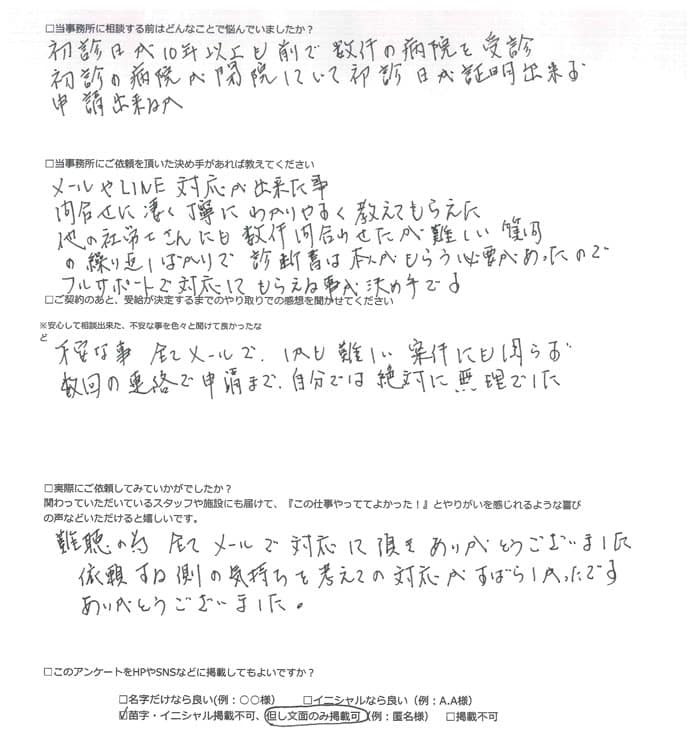 □当事務所に相談する前はどんなことで悩んでいましたか？
初診日が10年以上も前で 数件の病院を受診
初診の病院が閉院していて初診日が証明出来ず
申請出来ねか
□当事務所にご依頼を頂いた決め手があれば教えてください
メールやLINE 対応が出来た事
問合せに凄く丁寧に わかりやすく 教えてもらえた
他の社労士さんにも 数件問合わせたが難しい 質問
の繰り返しばかりで 診断書は本人がもらう必要があったので
フルサポートで対応してもらえる事が決め手です
□ご契約のあと、受給が決定するまでのやり取りでの感想を聞かせてください
※安心して相談出来た、不安な事を色々と聞けて良かったな
ど
不安な事 全てメールで、しかも 難しい 案件にも関らず
数回の連絡で申請まで、自分では 絶対に無理でした
□実際にご依頼してみていかがでしたか？
関わっていただいているスタッフや施設にも届けて、『この仕事やっててよかった！』とやりがいを感じれるような喜び
の声などいただけると嬉しいです。
難聴の為 全て メールで 対応して頂き ありがとうございました
依頼する側の気持ちを考えての対応がすばらしかったです
ありがとうございました。
□このアンケートをHPやSNSなどに掲載してもよいですか？
□名字だけなら良い(例：○○様) □イニシャルなら良い（例：A.A様）
☑苗字・イニシャル掲載不可、但し文面のみ掲載可（例：匿名様） □掲載不可